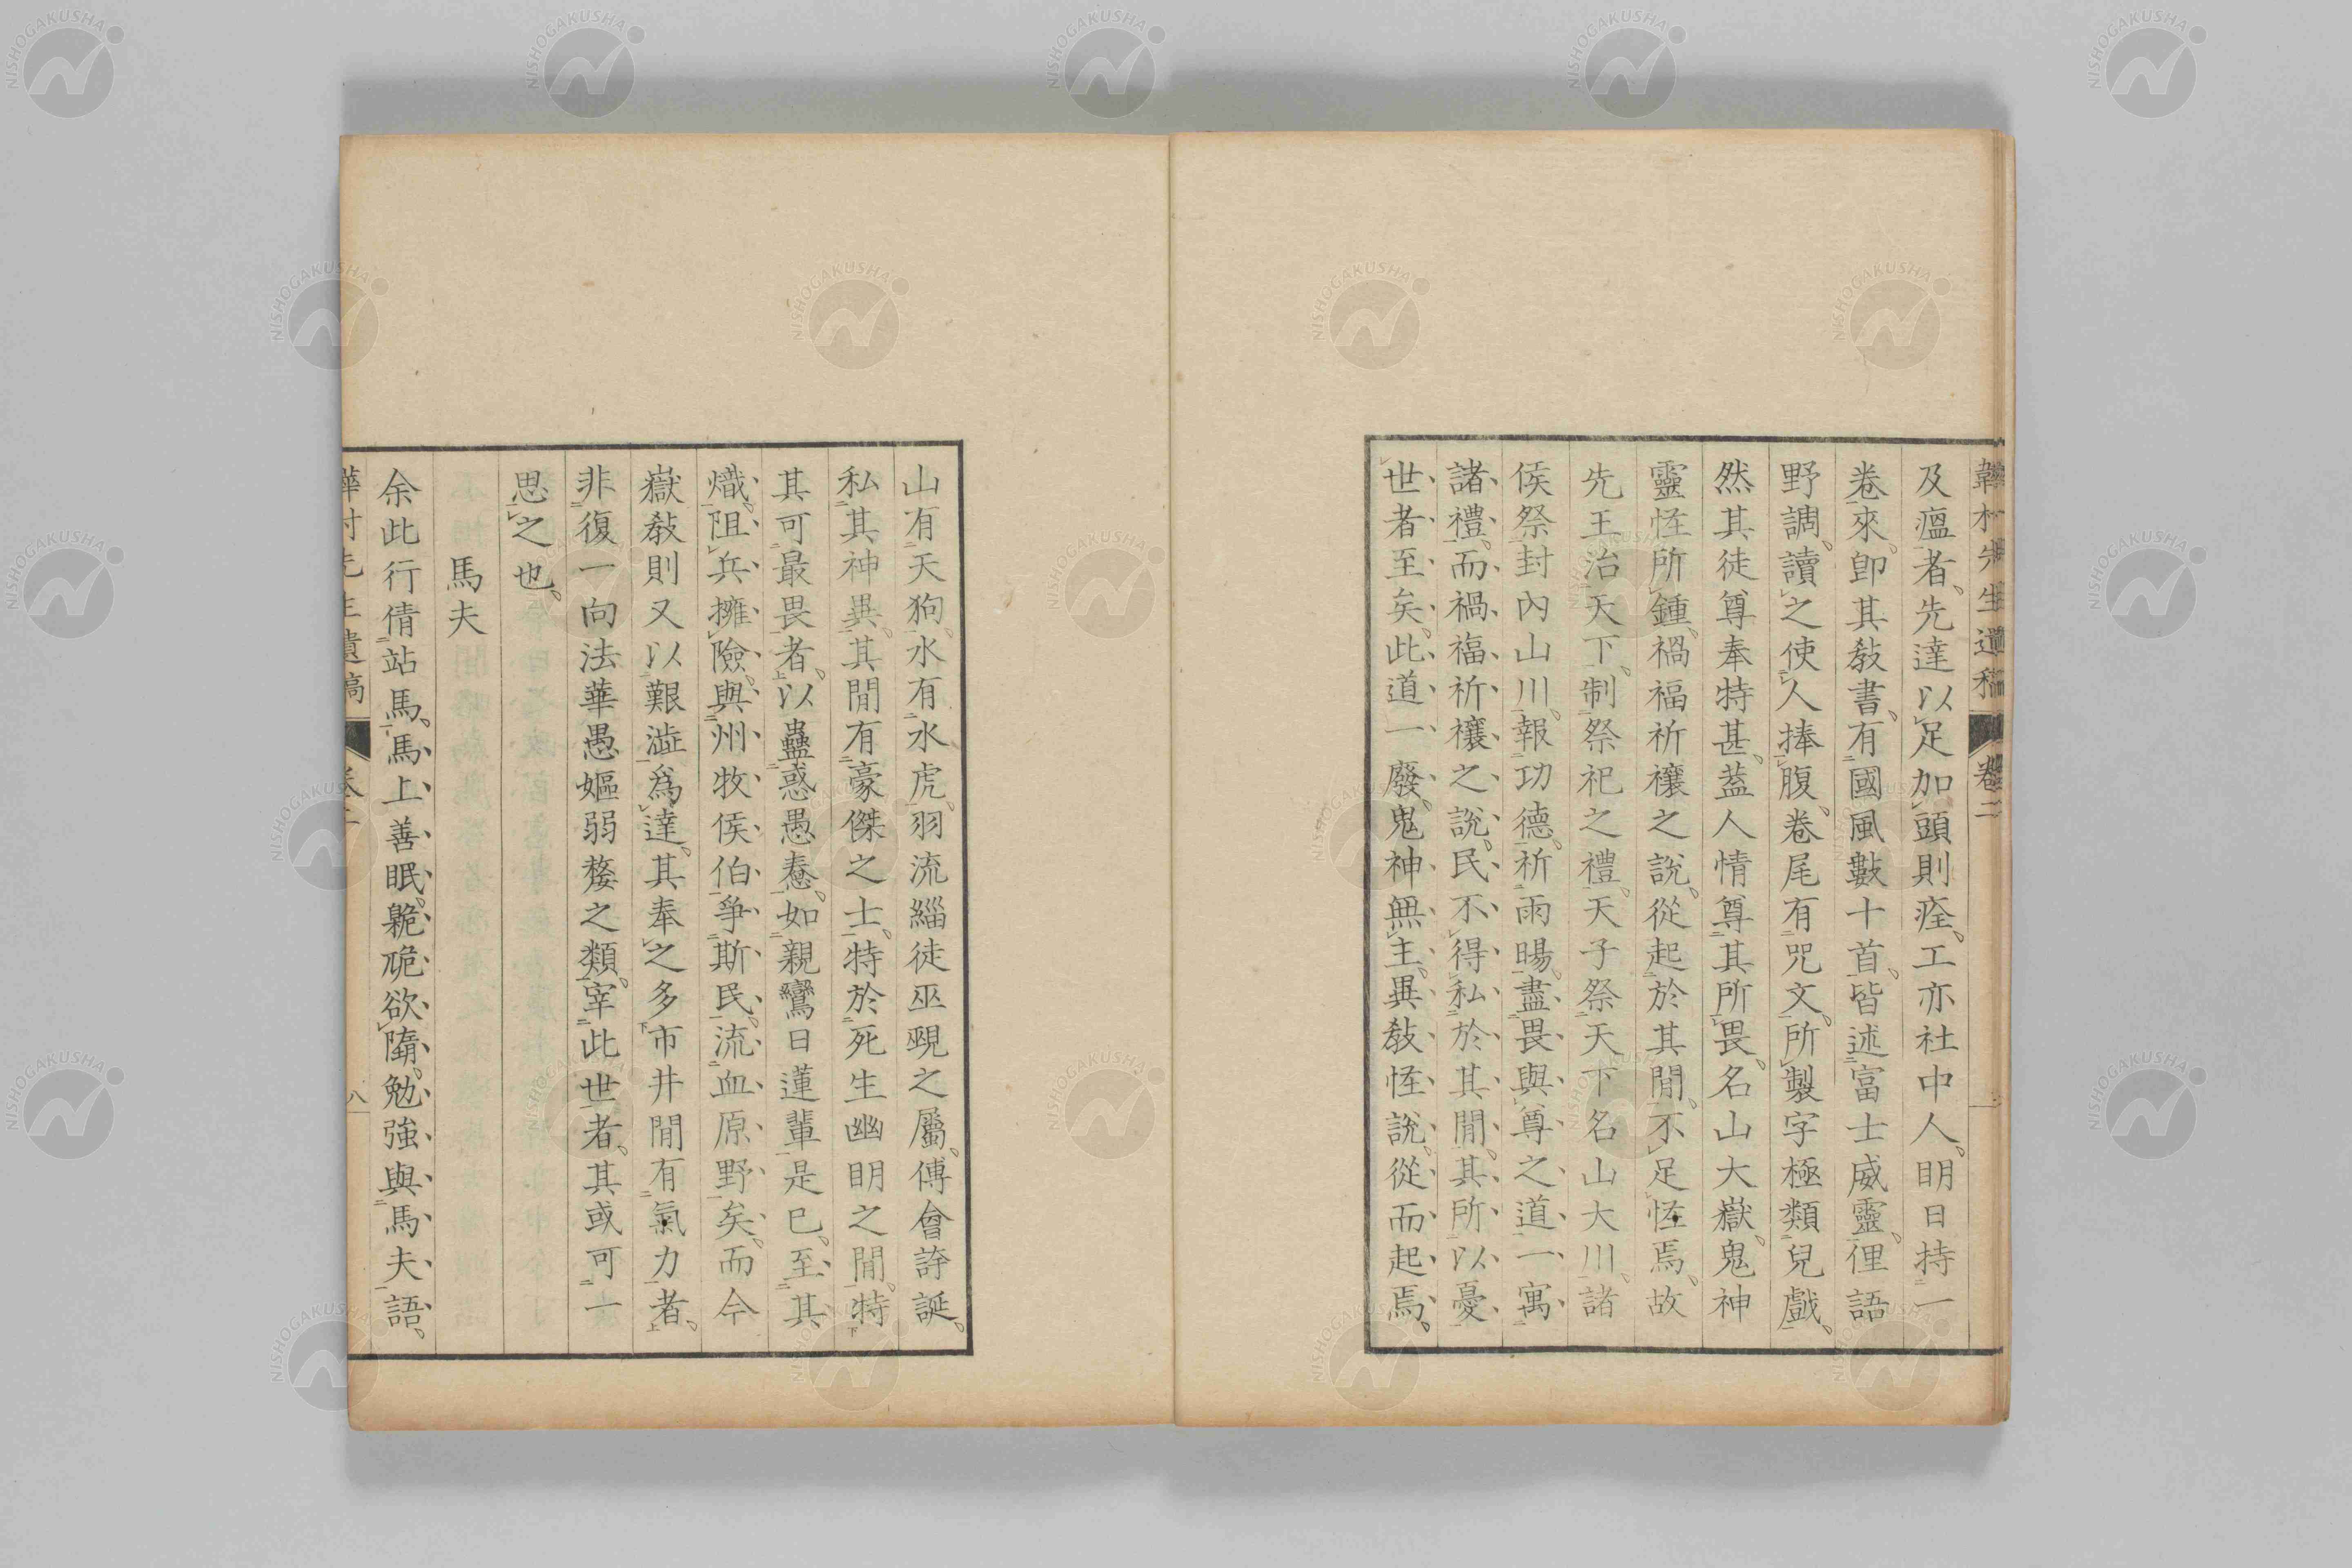 及瘟者、先達以足加頭則痊、工亦社中人、明日持一
卷來、卽其敎書、有國風數十首、皆述富士威靈、俚語
野調、讀之使人捧腹、卷尾有咒文、所製字極類兒戲、
然其徒尊奉特甚、葢人情尊其所畏、名山大嶽、鬼神
靈恠所鍾、禍福祈禳之說、從起於其閒、不足恠焉、故
先王治天下、制祭祀之禮、天子祭天下名山大川、諸
侯祭封內山川、報功德、祈雨暘、盡畏與尊之道、一寓
諸禮、而禍福祈禳之說、民不得私於其閒、其所以憂
世者至矣、此道一廢、鬼神無主、異敎恠說、從而起焉、
山有天狗、水有水虎、羽流緇徒巫覡之屬、傅會誇誕、
私其神異、其閒有豪傑之士、特於死生幽明之閒、特
其可最畏者、以蠱惑愚惷、如親鸞日蓮輩是已、至其
熾、阻兵擁險、與州牧侯伯爭斯民、流血原野矣、而今
嶽敎則又以艱澁爲達、其奉之多市井閒有氣力者、
非復一向法華愚嫗弱嫠之類、宰此世者、其或可一
思之也、
馬夫
余此行倩站馬、馬上善眠、臲卼欲隋、勉強與馬夫語、
卷二
NISHOGAKUSHA